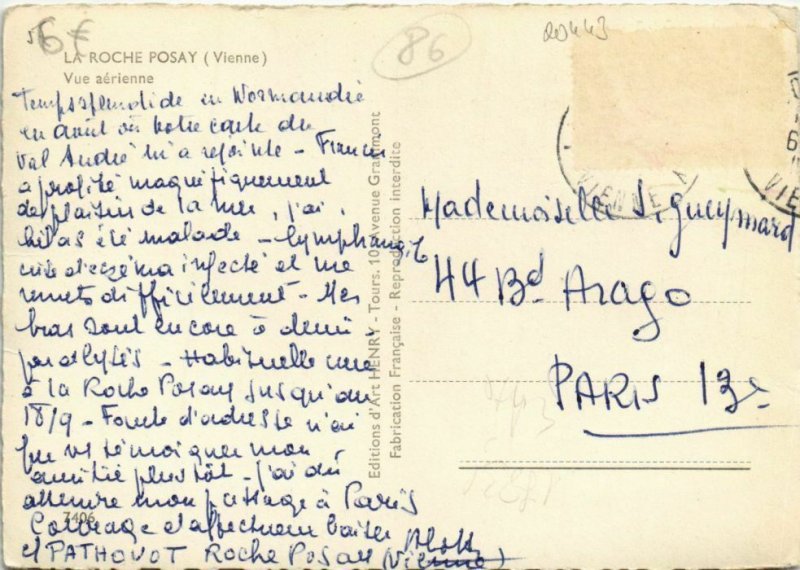 6€
86
20443
LA ROCHE POSAY (Vienne)
Vue aérienne
Temps splendide en Normandie
en août où votre carte du
Val André m'a rejointe - Francis
a profité magnifiquement
des plaisirs de la mer, j'ai,
hélas été malade - lymphangite
suite d'eczéma infecté et me
remets difficilement - Mes
bras sont encore à demi
paralysés - Habituelle cure
à la Roche Posay jusqu'au
18/9 - Faute d'adresse n'ai
pu vs témoigner mon
amitié plus tôt - J'ai dû
attendre mon passage à Paris
Courage et affectueux baiser
PATHOUOT Roche Posay (Vienne)
7406
Editions d'Art HENRY - Tours. 10, Avenue Grammont
Fabrication Française - Reproduction interdite
VIENNE
VIEN
Mademoiselle
44 Bd Arago
PARIS 13e